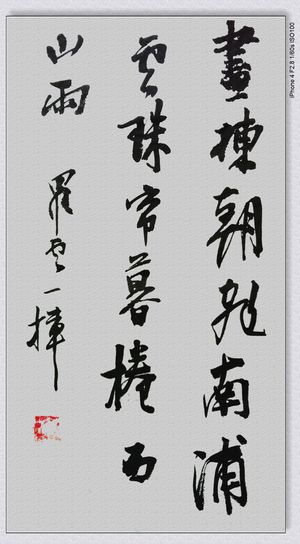 畫棟朝飛南浦
雲珠帘暮捲西
山雨
羅雲一
iPhone 4 F2.8 1/60s ISO100